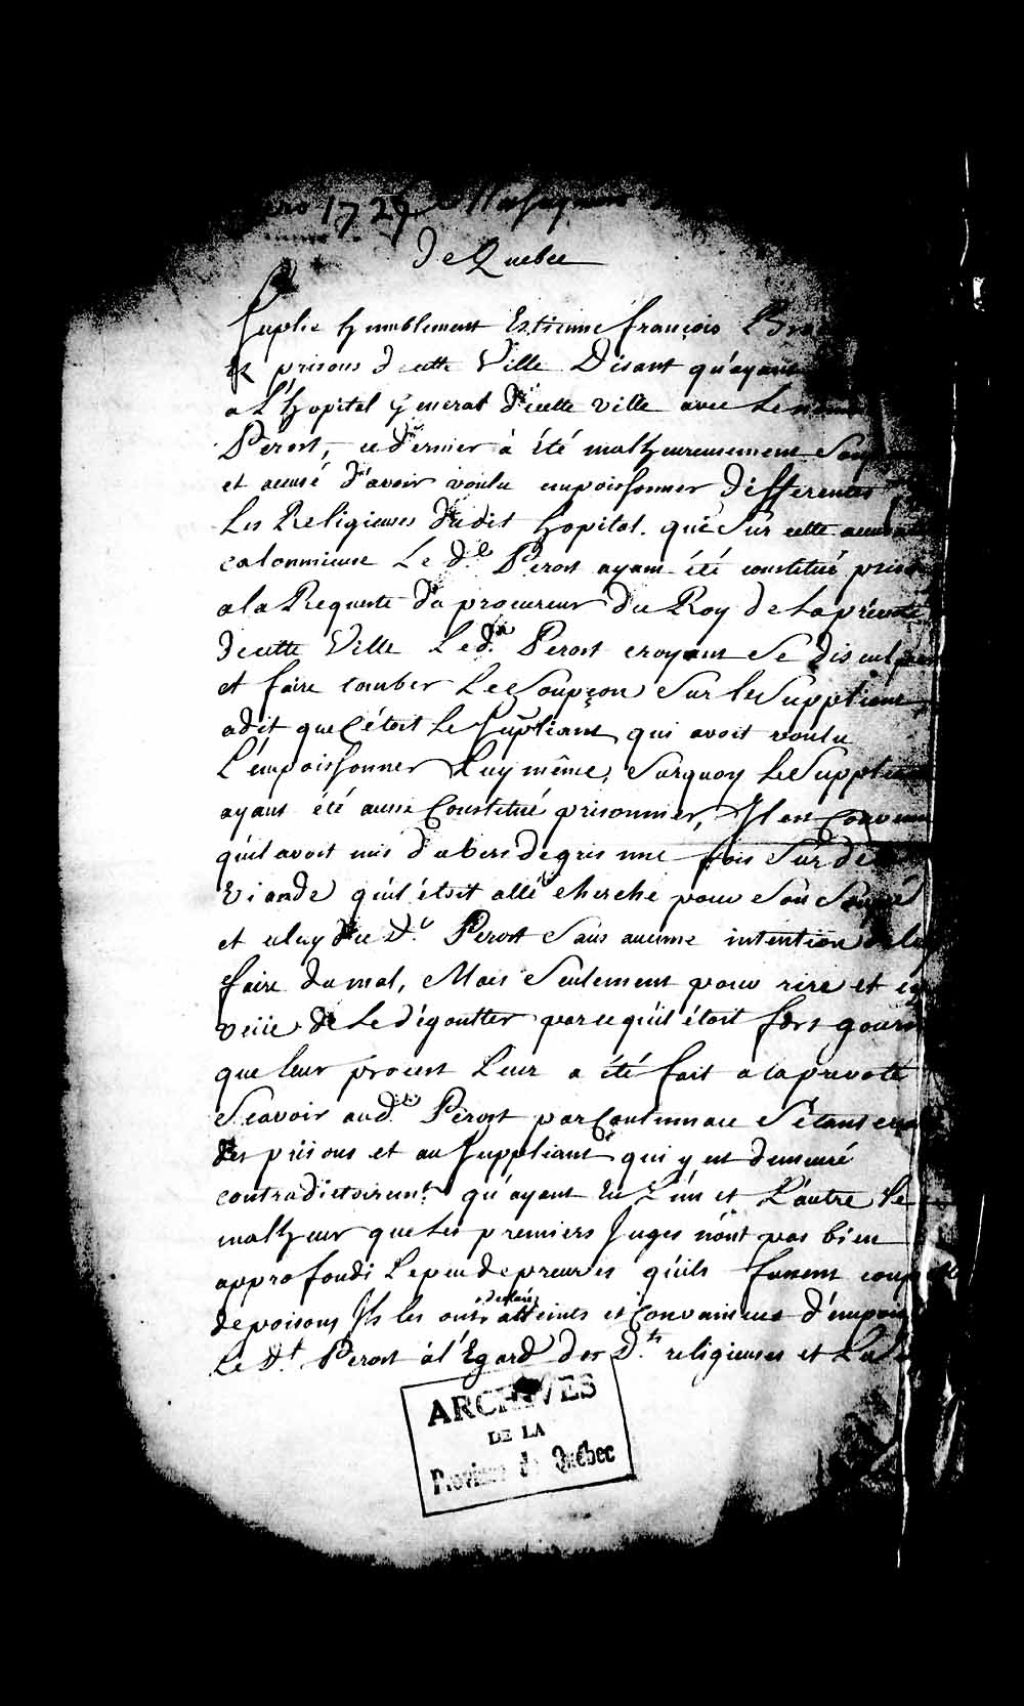 1729
de Quebec
Suplie humblement Estienne françois
prisons d cette Ville Disant qu'ayant
a L'hopital general d'icelle ville avec Le
Perost, ce dernier à été malheureusement
et accusé d'avoir voulu empoissonner differentes
Les Religieuses dudit hopital. que Sur cette
calomnieuse Le d.t Perost ayant été constitué
a la Requeste du procureur du Roy de La prevoté
de cette Ville Led.t Perost croyant Se disculper
et faire tomber Le Soupçon Sur le Suppliant
a dit que C'étoit Le Supliant qui avoit voulu
L'empoissonner Luy même, Surquoy Le Suppliant
ayant été aussi Constitué prisonnier, Il est Convenu
qu'il avoit mis d'abers degris une fois Sur de
Viande qu'il étoit allé cherche pour Son Soupé
et celuy du d.t Perost Sans aucune intention de luy
faire du mal, Mais Seulement pour rire et
veüe de Le dégoutter parce qu'il étoit fort
que leur procest Leur a été fait a la prevoté
Scavoir aud.t Perost par Contumace S'étant
des prisons et au Suppliant qui y est demeuré
contradictoirem.t qu'ayant Eu L'un et L'autre Le
malheur que Les premiers Juges n'ont pas bien
approfondi Le peu de preuves qu'ils
de poisons Ils les ont declarés atteints et Convaincus
Le d.t Perost à l'Egard des d.tes religieuses et
ARCHIVES
DE LA
Province de Québec